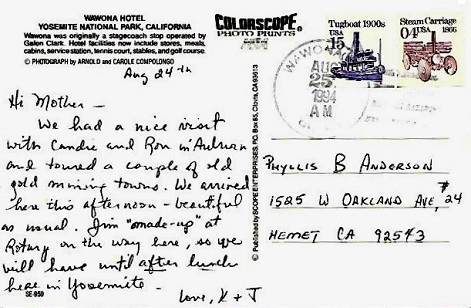 WAWONA HOTEL
YOSEMITE NATIONAL PARK, CALIFORNIA
Wawona was originally a stagecoach stop operated by
Galen Clark. Hotel facilities now include stores, meals,
cabins, service station, tennis court, stables, and golf course.
© PHOTOGRAPH by ARNOLD and CAROLE COMPOLONGO
Aug 24th
Hi Mother —
We had a nice visit
with Candie and Ron in Auburn
and toured a couple of old
gold mining towns. We arrived
here this afternoon - beautiful
as usual. Jim "made-up" at
Rotary on the way here, so we
will have until after lunch
here in Yosemite -
Love, K + J
SE-950
COLORSCOPE
PHOTO PRINTS
© Published by SCOPE ENTERPRISES, P.O. Box 65, Clovis, CA 93613
Tugboat 1900s
USA
15
Steam Carriage
04 USA 1866
WAWONA
AUG
25
1994
AM
PHYLLIS B ANDERSON
1525 W OAKLAND AVE, #24
HEMET CA 92543